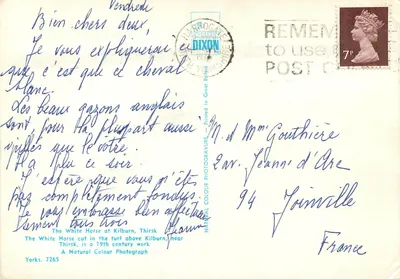 Vendredi
Bien chers deux,
Je vous expliquerai ce
que c'est que ce cheval
blanc.
Les beaux gazons anglais
sont pour la plupart aussi
grillés que le vôtre.
Il a plu ce soir.
J'espère que vous n'êtes
pas complètement fondus.
Je vous embrasse bien affectueu
sement tous deux
The White Horse at Kilburn, Thirsk
The White Horse cut in the turf above Kilburn, near
Thirsk, is a 19th century work
A Natural Colour Photograph
Yorks. 7265
DIXON
NATURAL COLOUR PHOTOGRAPH
Printed in Great Britain
REMEM
to use
POST C
7P
M. et Mme Gouthière
2 av. Jeanne d'Arc
94 Joinville
France